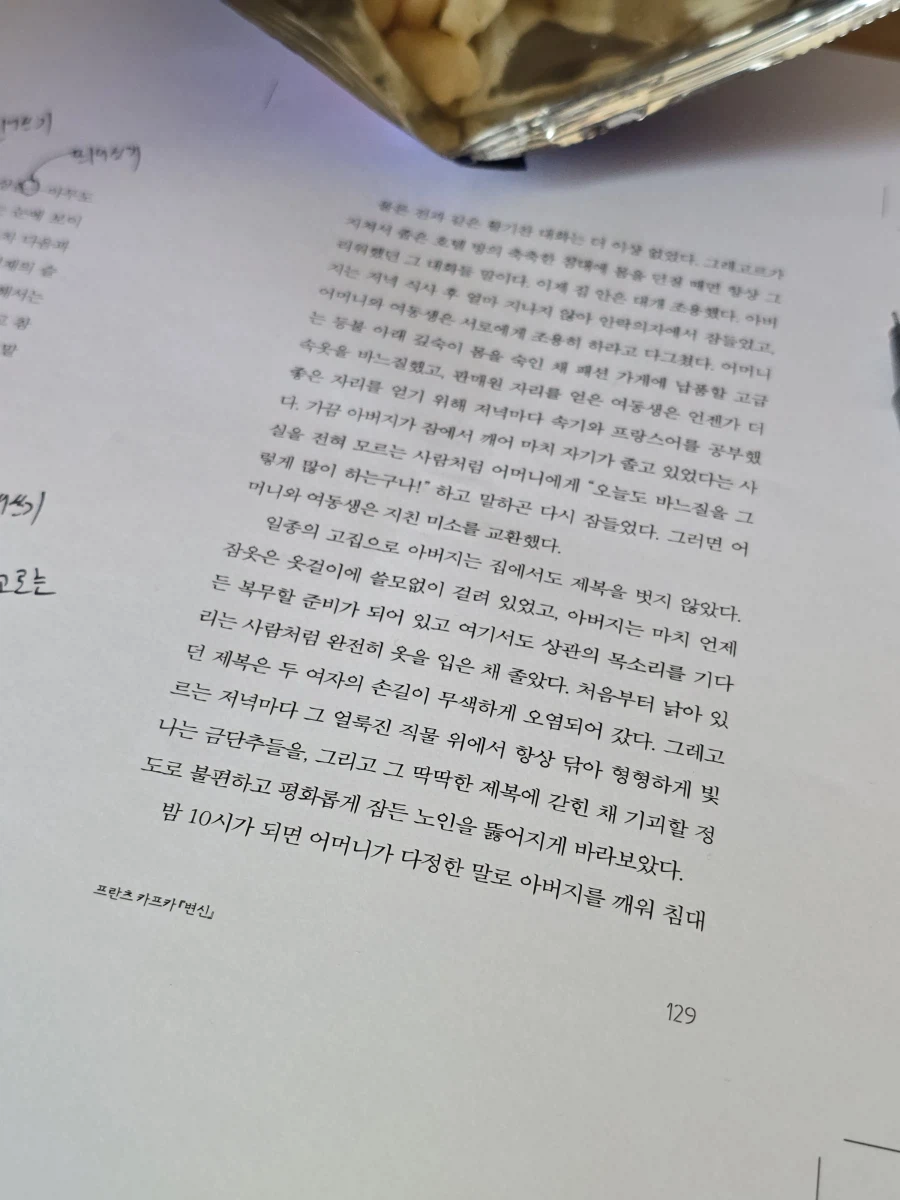 띄어쓰기
물론 전과 같은 활기찬 대화는 더 이상 없었다. 그레고르가
지쳐서 좁은 호텔 방의 축축한 침대에 몸을 던질 때면 항상 그
리워했던 그 대화들 말이다. 이제 집 안은 대개 조용했다. 아버
지는 저녁 식사 후 얼마 지나지 않아 안락의자에서 잠들었고,
어머니와 여동생은 서로에게 조용히 하라고 다그쳤다. 어머니
는 등불 아래 깊숙이 몸을 숙인 채 패션 가게에 납품할 고급
속옷을 바느질했고, 판매원 자리를 얻은 여동생은 언젠가 더
좋은 자리를 얻기 위해 저녁마다 속기와 프랑스어를 공부했
다. 가끔 아버지가 잠에서 깨어 마치 자기가 졸고 있었다는 사
실을 전혀 모르는 사람처럼 어머니에게 “오늘도 바느질을 그
렇게 많이 하는구나!” 하고 말하곤 다시 잠들었다. 그러면 어
머니와 여동생은 지친 미소를 교환했다.
일종의 고집으로 아버지는 집에서도 제복을 벗지 않았다.
잠옷은 옷걸이에 쓸모없이 걸려 있었고, 아버지는 마치 언제
든 복무할 준비가 되어 있고 여기서도 상관의 목소리를 기다
리는 사람처럼 완전히 옷을 입은 채 졸았다. 처음부터 낡아 있
던 제복은 두 여자의 손길이 무색하게 오염되어 갔다. 그레고
르는 저녁마다 그 얼룩진 직물 위에서 항상 닦아 형형하게 빛
나는 금단추들을, 그리고 그 딱딱한 제복에 갇힌 채 기괴할 정
도로 불편하고 평화롭게 잠든 노인을 뚫어지게 바라보았다.
밤 10시가 되면 어머니가 다정한 말로 아버지를 깨워 침대
프란츠 카프카 『변신』
129